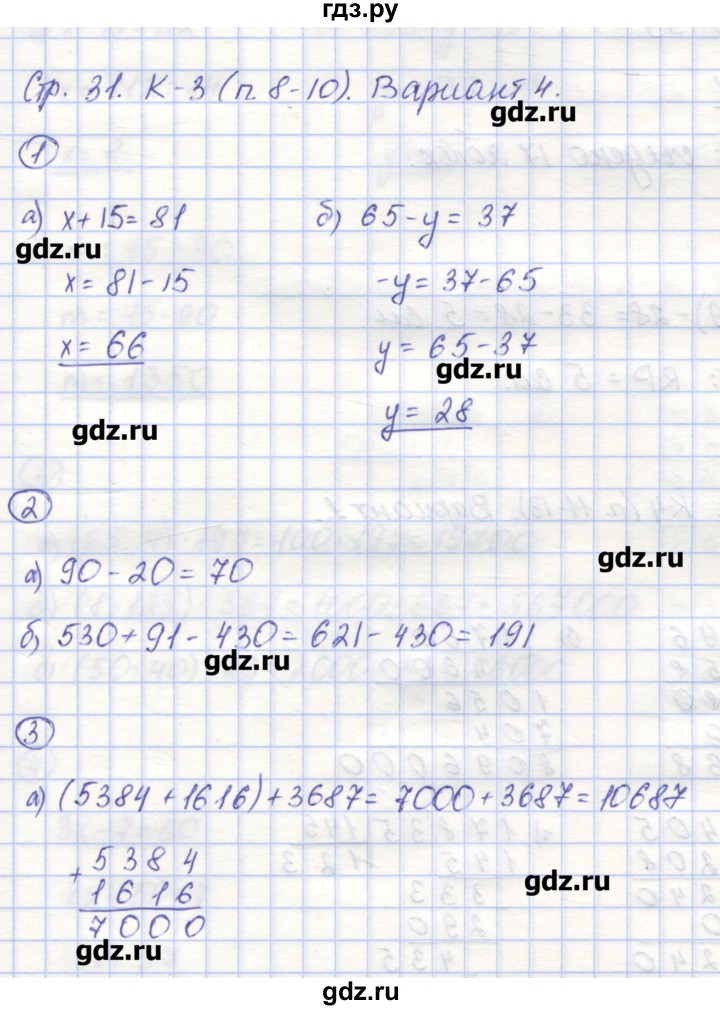 гдз.ру
Стр. 31. К-3 (п. 8-10). Вариант 4.
gdz.ru
1
а) x+15=81
б) 65-y=37
gdz.ru
x=81-15
-y=37-65
x=66
y=65-37
gdz.ru
y=28
gdz.ru
2
gdz.ru
а) 90-20=70
б) 530+91-430=621-430=191
gdz.ru
3
а) (5384+1616)+3687=7000+3687=10687
+ 5384
1616
gdz.ru
7000
gdz.ru
gdz.ru